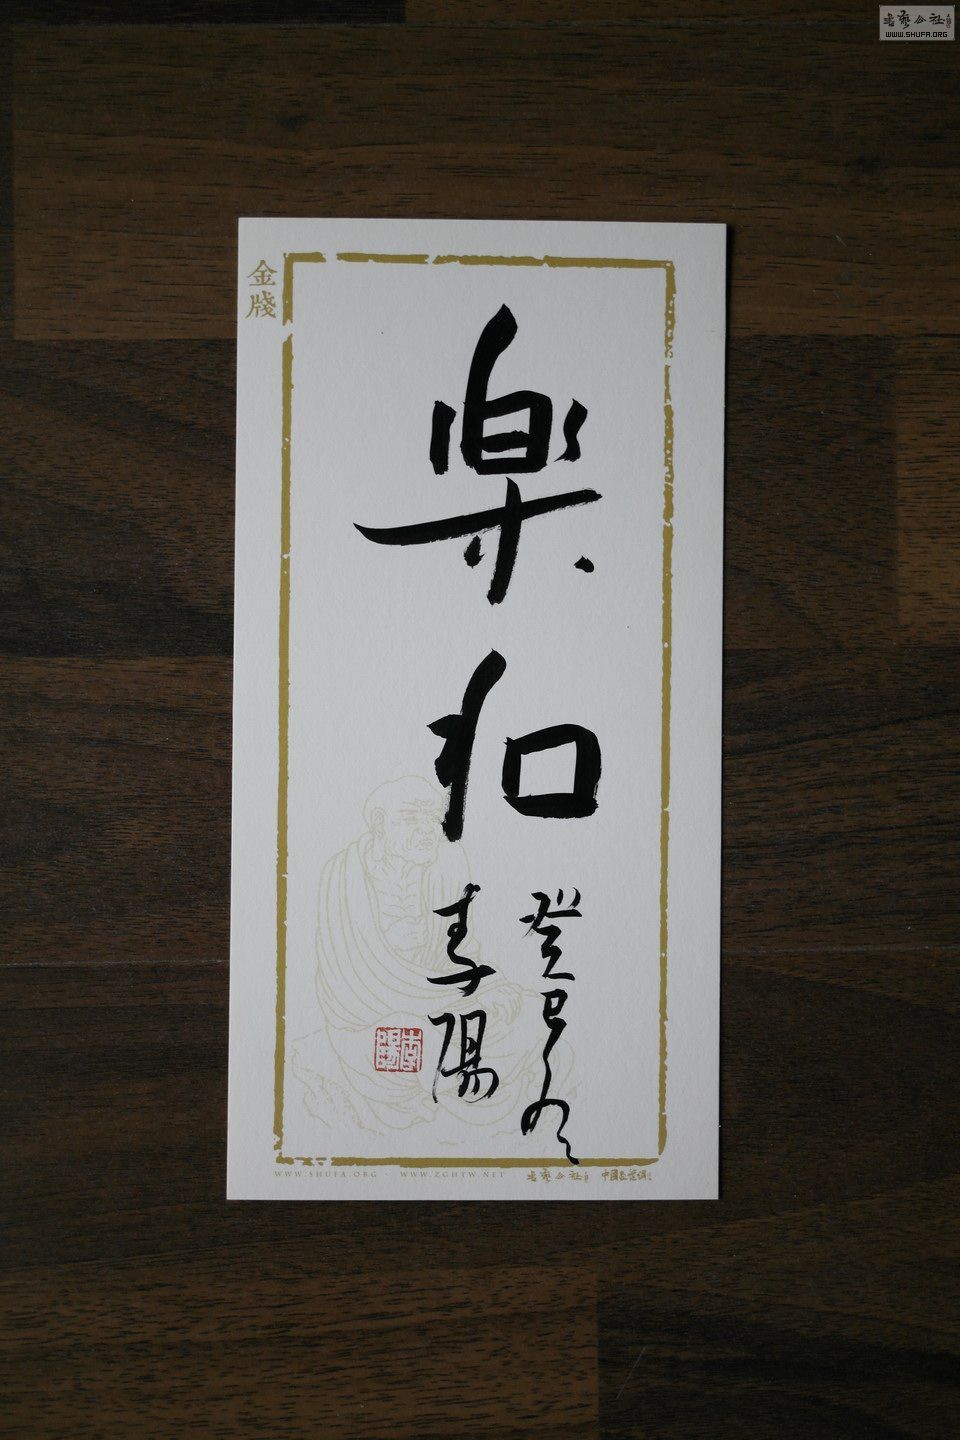 書藝公社
WWW.SHUFA.ORG
金牋
楽和
癸巳冬
李陽
WWW.SHUFA.ORG
WWW.ZGHTW.NET
書藝公社